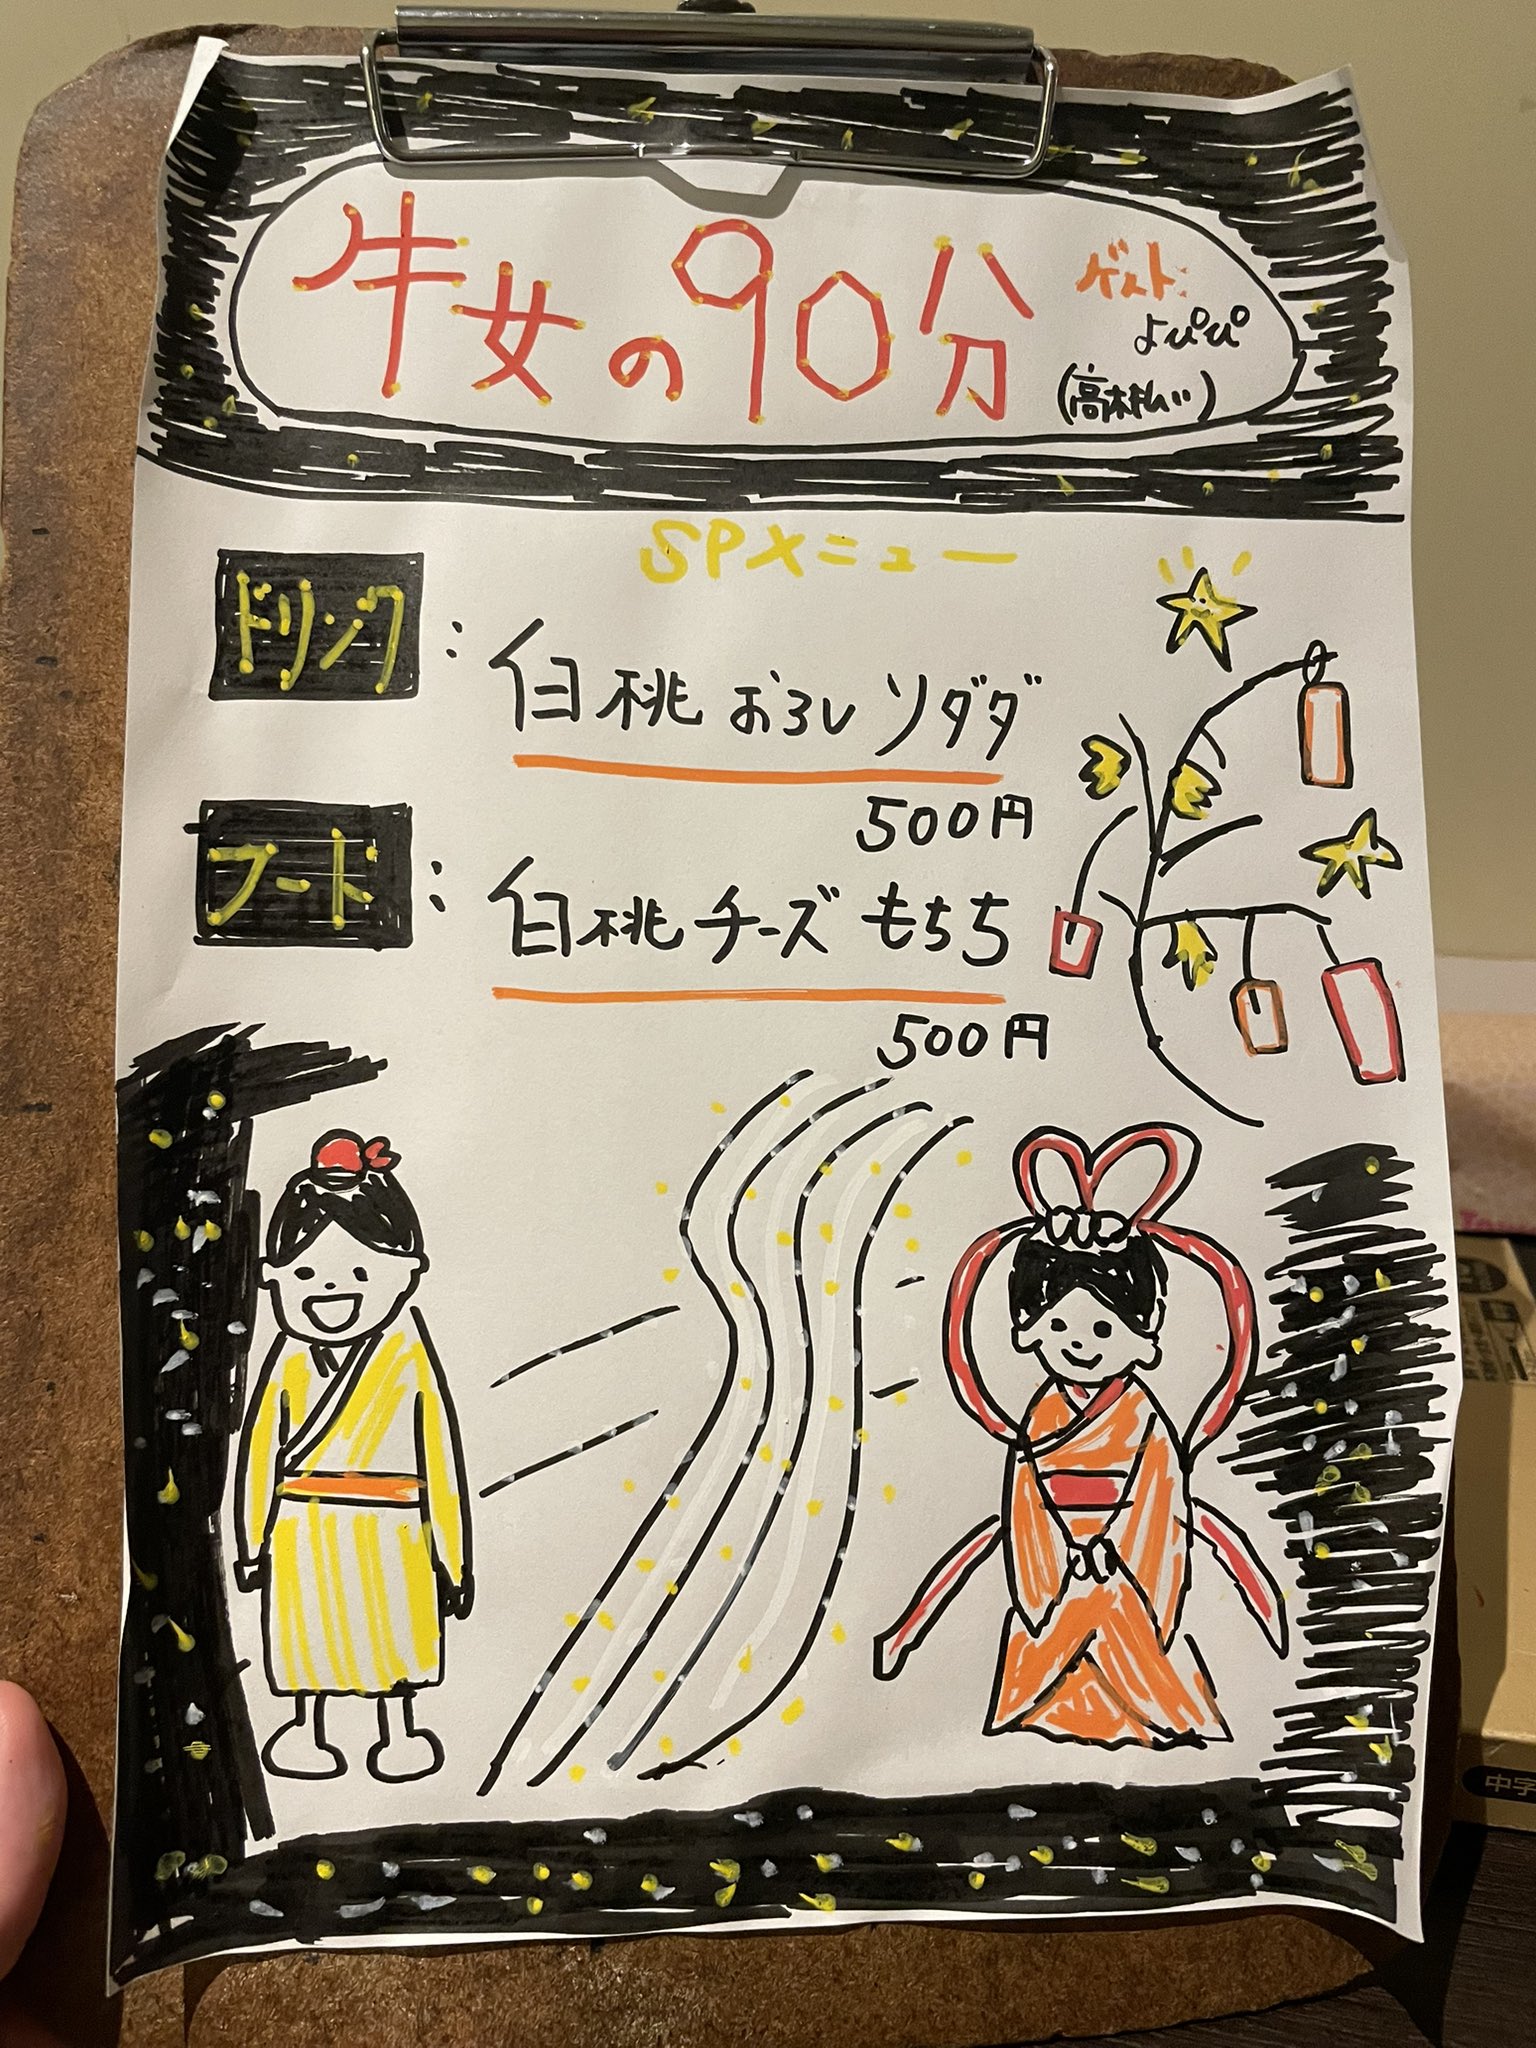 牛女の90分
ゲスト:
よぴぴ
(高木払い)
SPメニュー
ドリンク:
白桃おろしソダダ
500円
フード:
白桃チーズもちち
500円
中字